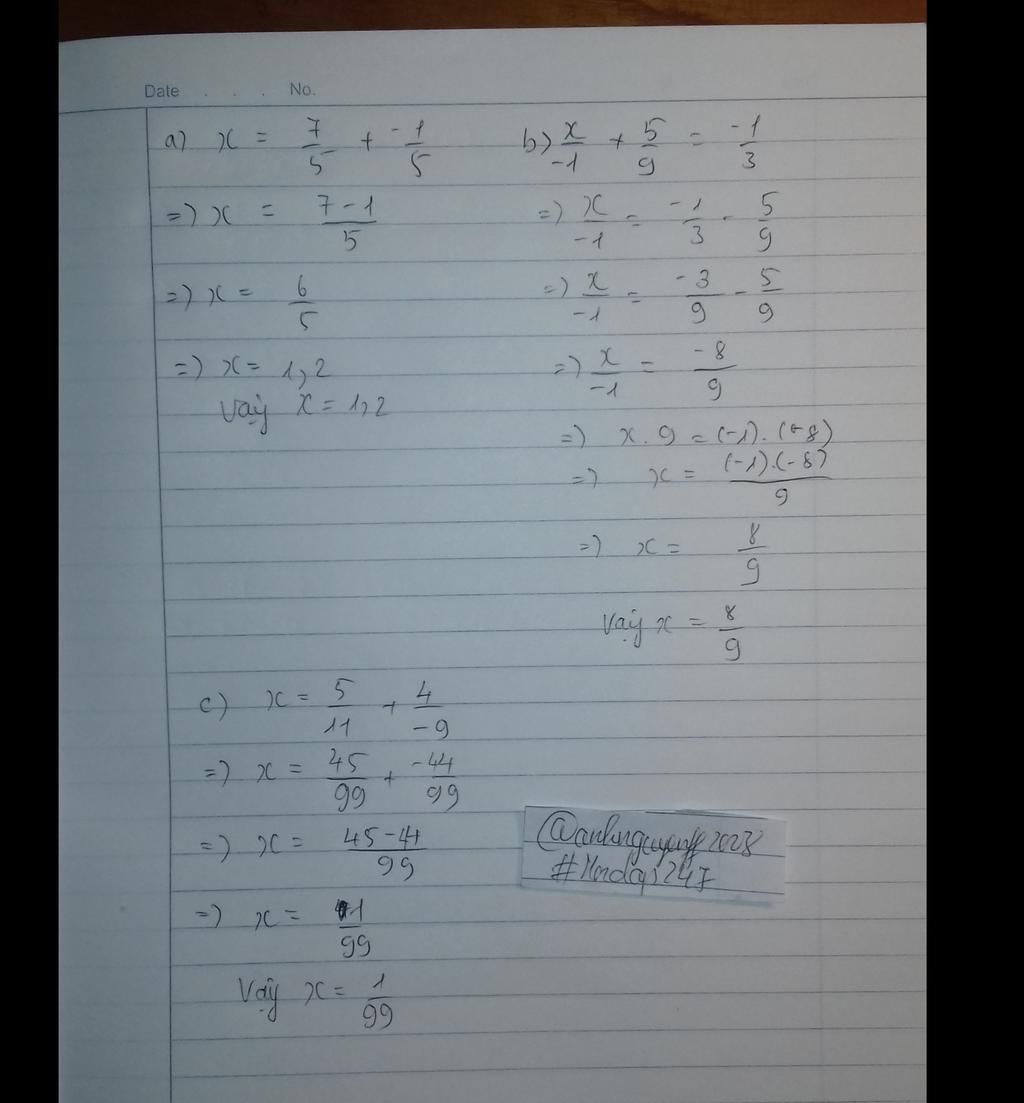 Date . . . No.
a) x = 7/5 + -1/5
=) x = 7-1/5
=) x = 6/5
=) x = 1,2
Vậy x = 1,2
b) x/-1 + 5/9 = -1/3
=) x/-1 = -1/3 - 5/9
=) x/-1 = -3/9 - 5/9
=) x/-1 = -8/9
=) x . 9 = (-1) . (-8)
=) x = (-1).(-8)/9
=) x = 8/9
Vậy x = 8/9
c) x = 5/11 + 4/-9
=) x = 45/99 + -44/99
=) x = 45-44/99
=) x = 1/99
Vậy x = 1/99
#Hoidap247